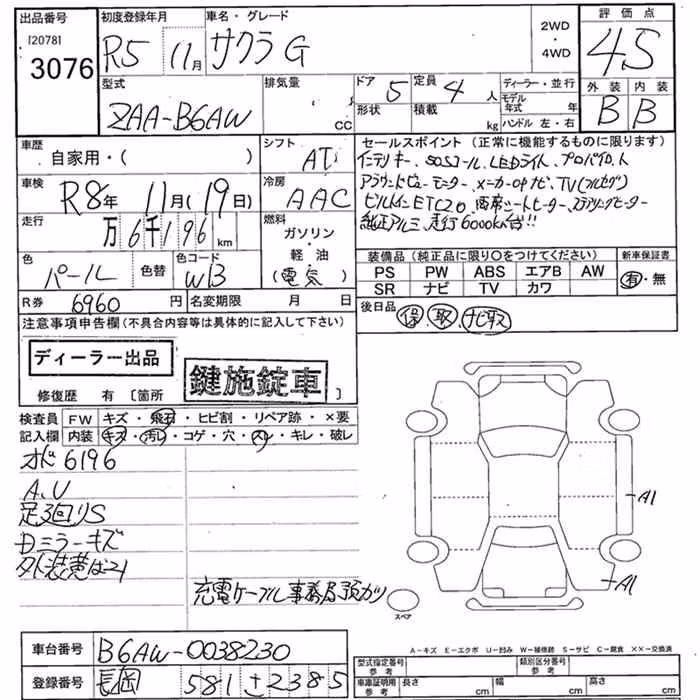 出品番号 初度登録年月 車名・グレード 2WD・4WD 評価点
[2078] 3076 R5 11月 サクラ G 4.5
型式 排気量 ドア 5 定員 4 人 ディーラー・並行 外装 内装
ZAA-B6AW cc 形状 積載 kg モデル年式 年 B B
ハンドル 左・右
車歴 自家用・( ) シフト AT セールスポイント(正常に機能するものに限ります)
インテリキー、SOSコール、LEDライト、プロパイロット
車検 R8年 11月(19日) 冷房 AAC アラウンドビューモニター、メーカーOPナビ、TV(フルセグ)
ビルトインETC2.0 両席シートヒーター、ステアリングヒーター
走行 万6千196km 燃料 ガソリン・軽油(電気) 純正アルミ、走行6000km台!!
色 パール 色替 色コード WB 装備品(純正品に限り〇をつけてください) 新車保証書
PS PW ABS エアB AW 有・無
SR ナビ TV カワ
R券 6960円 名変期限 月 日 後日品 保、取、ナビ取
注意事項申告欄(不具合内容等は具体的に記入して下さい)
ディーラー出品 鍵施錠車
修復歴 有〔箇所 〕
検査員 FW キズ・飛石・ヒビ割・リペア跡・×要
記入欄 内装 キズ・汚レ・コゲ・穴・スレ・キレ・破レ
オド6196
A、U
足廻りS
Dミラーキズ
A1
充電ケーブル事務局預カリ
A1
スペア
A-キズ E-エクボ U-凹み W-補修跡 S-サビ C-腐食 ××-交換済
車台番号 B6AW-0038230 型式指定番号 参考 類別区分番号 参考
登録番号 長岡 581 さ2385 車庫証明用 参考 長さ cm 幅 cm 高さ cm